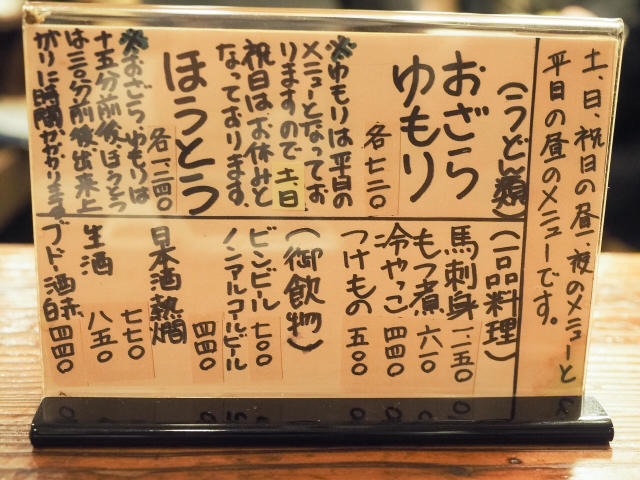 土、日、祝日の昼、夜のメニューと
平日の昼のメニューです。
(うどん類)
おざら
ゆもり
各七二〇
※ゆもりは平日の
メニューとなってお
りますので土、日
祝日はお休みと
なっております。
ほうとう
各一、二四〇
※おざら、ゆもりは
十五分前後ほうとう
は三〇分前後出来上
がりに時間がかかります
(一品料理)
馬刺身 一、一五〇
もつ煮 六一〇
冷やっこ 四四〇
つけもの 五〇〇
(御飲物)
ビンビール 七〇〇
ノンアルコールビール
四四〇
日本酒熱燗
七七〇
生酒 八五〇
ブドー酒 赤白 四四〇